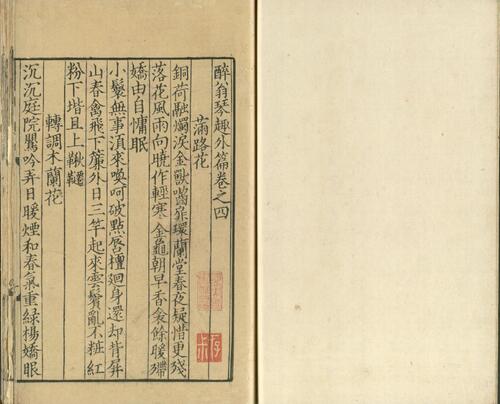 醉翁琴趣外篇卷之四
滿路花
銅荷融燭淚金獸嚙扉環蘭堂春夜疑惜更殘
落花風雨向曉作輕寒金龜朝早香衾餘暖殢
嬌由自慵眠
小鬟無事須來喚呵破點唇檀廻身還却背屏
山春禽飛下簾外日三竿起來雲鬢亂不粧紅
粉下堦且上鞦韆
轉調木蘭花
沉沉庭院鶯吟弄日暖煙和春氣重綠楊嬌眼